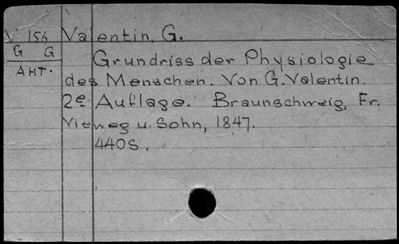 V. 156 Valentin, G.
G G Grundriss der Physiologie
AHT. des Menschen. Von G. Valentin.
2e Auflage. Braunschweig, Fr.
Vieweg u. Sohn, 1847.
440S.